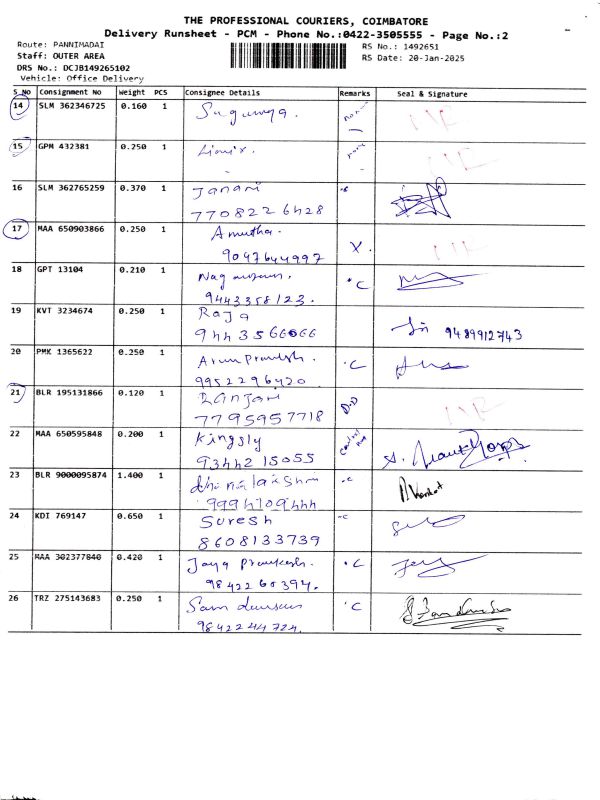 THE PROFESSIONAL COURIERS, COIMBATORE
Delivery Runsheet - PCM - Phone No.:0422-3505555 - Page No.:2
Route: PANNIMADAI
RS No.: 1492651
Staff: OUTER AREA
RS Date: 20-Jan-2025
DRS No.: DCJB149265102
Vehicle: Office Delivery
S No Consignment No Weight PCS Consignee Details Remarks Seal & Signature
14 SLM 362346725 0.160 1 Suguniya.
15 GPM 432381 0.250 1
16 SLM 362765259 0.370 1 Janani
7708226428
17 MAA 650903866 0.250 1 Amutha.
9047644997 X.
18 GPT 13104 0.210 1 C
9443358123.
19 KVT 3234674 0.250 1 Raja
9443566066 9489912743
20 PMK 1365622 0.250 1 Arun Prakash. C
9952296420
21 BLR 195131866 0.120 1 Ranjani
7795957718
22 MAA 650595848 0.200 1 Kingsly
9344215055
23 BLR 9000095874 1.400 1 Venkat
9994709444
24 KDI 769147 0.650 1 Suresh
8608133739
25 MAA 302377840 0.420 1 Jaya Prakash. C
9842260394.
26 TRZ 275143683 0.250 1 C
9842244724.